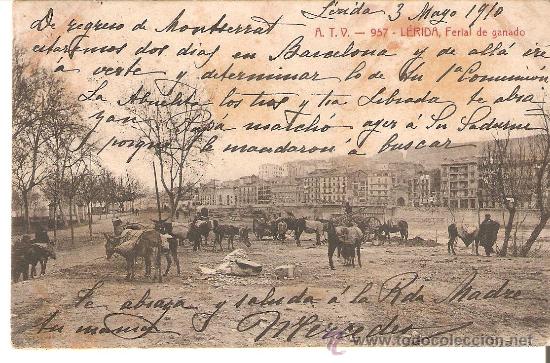 Lérida 3 Mayo 1910
A. T. V. — 957 - LÉRIDA, Ferial de ganado
De regreso de Montserrat
estaremos dos dias en Barcelona y de allá iré
á verte y determinar lo de tu 1ª Comunión
La Abuelita los tios y tia Librada te abra
zan Papá marchó ayer á
porque le mandaron á buscar
Te abraza y saluda á la Rda Madre
tu mamá
Mercedes
todocoleccion.net